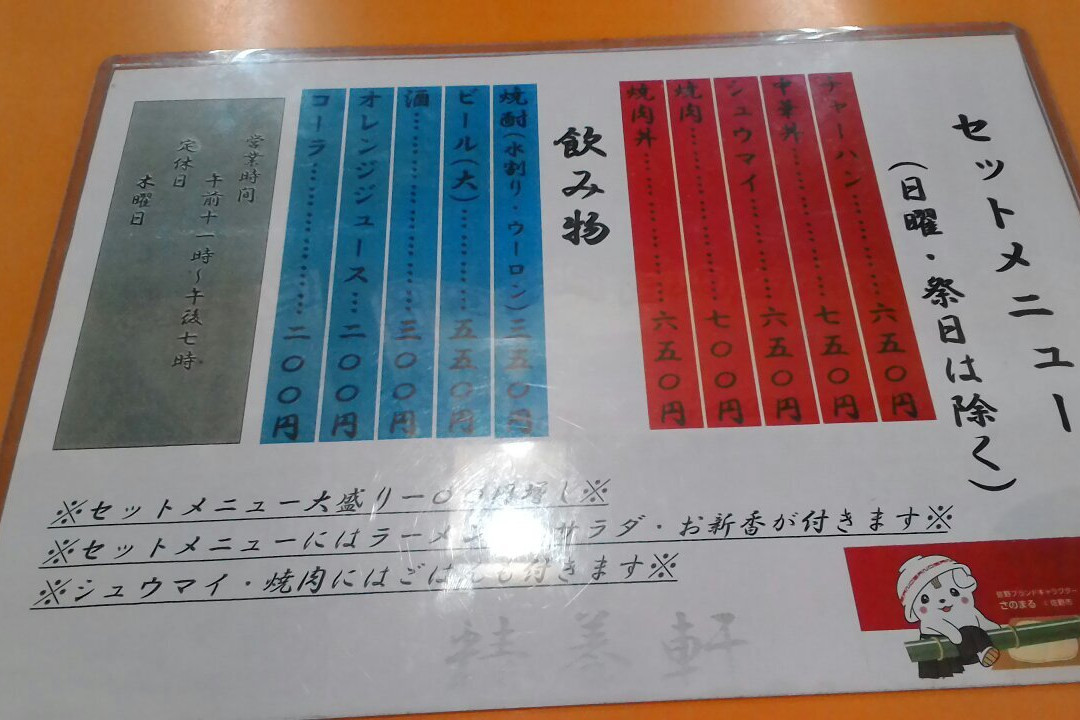 セットメニュー
(日曜・祭日は除く)
チャーハン……………六五〇円
中華丼……………七五〇円
シュウマイ……………六五〇円
焼肉……………七〇〇円
焼肉丼……………六五〇円
飲み物
焼酎(水割り・ウーロン)三五〇円
ビール(大)……………五五〇円
酒……………三〇〇円
オレンジジュース…二〇〇円
コーラ……………二〇〇円
営業時間
午前十一時~午後七時
定休日
木曜日
※セットメニュー大盛り一〇〇円増し※
※セットメニューにはラーメン サラダ・お新香が付きます※
※シュウマイ・焼肉にはごはんも付きます※
軒
佐野ブランドキャラクター
さのまる ©佐野市